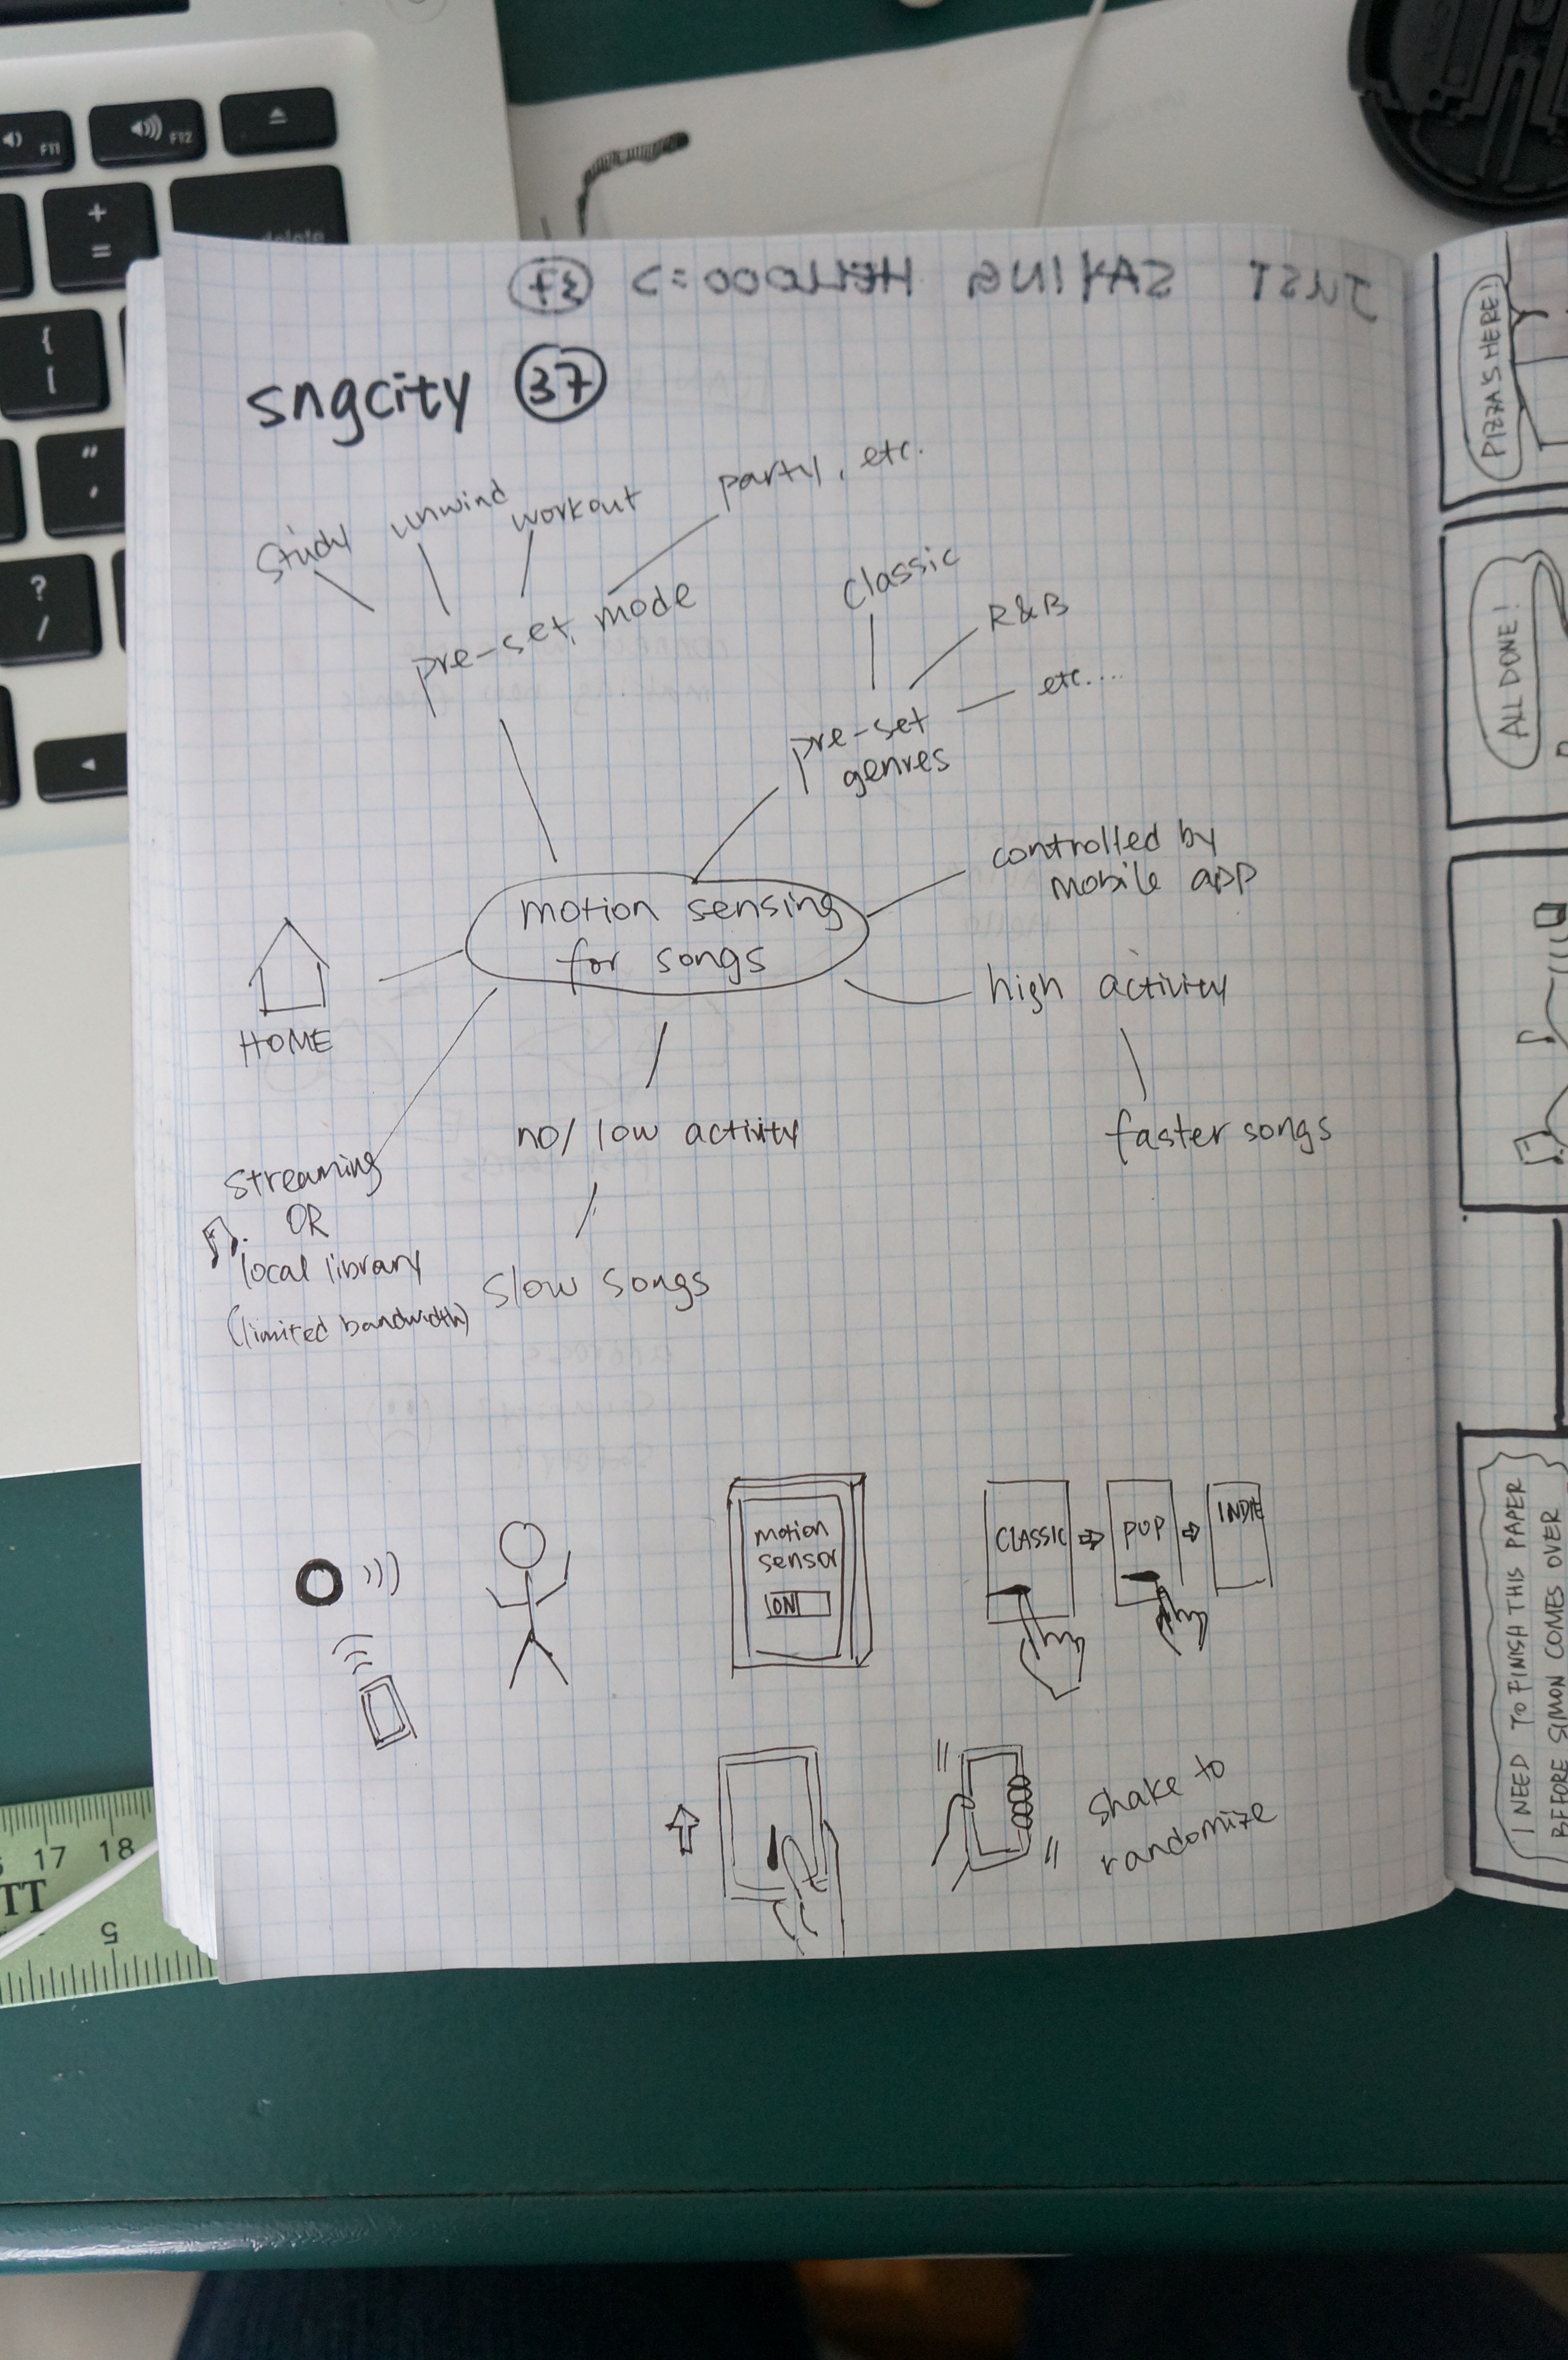 F11
F12
+
=
delete
{
[
"
'
?
/
JUST SAYING HELLOOO =)
sngcity 37
study
unwind
workout
party, etc.
pre-set mode
classic
R&B
etc....
pre-set
genres
motion sensing
for songs
controlled by
mobile app
HOME
high activity
faster songs
no/ low activity
slow songs
streaming
OR
local library
(limited bandwidth)
motion
sensor
ON
CLASSIC
POP
INDIE
shake to
randomize
PIZZA'S HERE!
ALL DONE!
I NEED TO FINISH THIS PAPER
BEFORE SIMON COMES OVER
17 18
TT
5